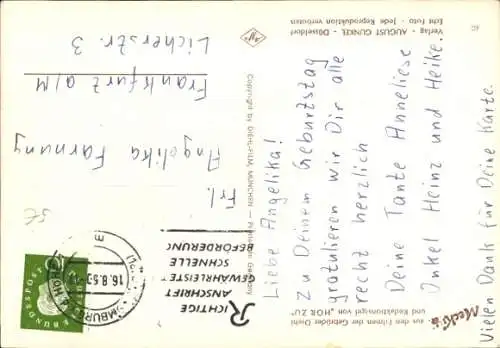 Liebe Angelika!
Zu Deinem Geburtstag
gratulieren wir Dir alle
recht herzlich
Deine Tante Anneliese
Onkel Heinz und Heike.
Vielen Dank für Deine Karte.
Frl.
Angelika Farnung
Frankfurt a/M
Licherstr. 3
RICHTIGE
ANSCHRIFT
GEWÄHRLEISTET
SCHNELLE
BEFÖRDERUNG
16.8.5
DEUTSCHE BUNDESPOST
Mecki
aus den Filmen der Gebrüder Diehl
und Redaktionsigel von „HÖR ZU"
Verlag - AUGUST GUNKEL - Düsseldorf
Echt Foto - Jede Reproduktion verboten
Copyright by DIEHL-FILM, MÜNCHEN — Printed in Germany